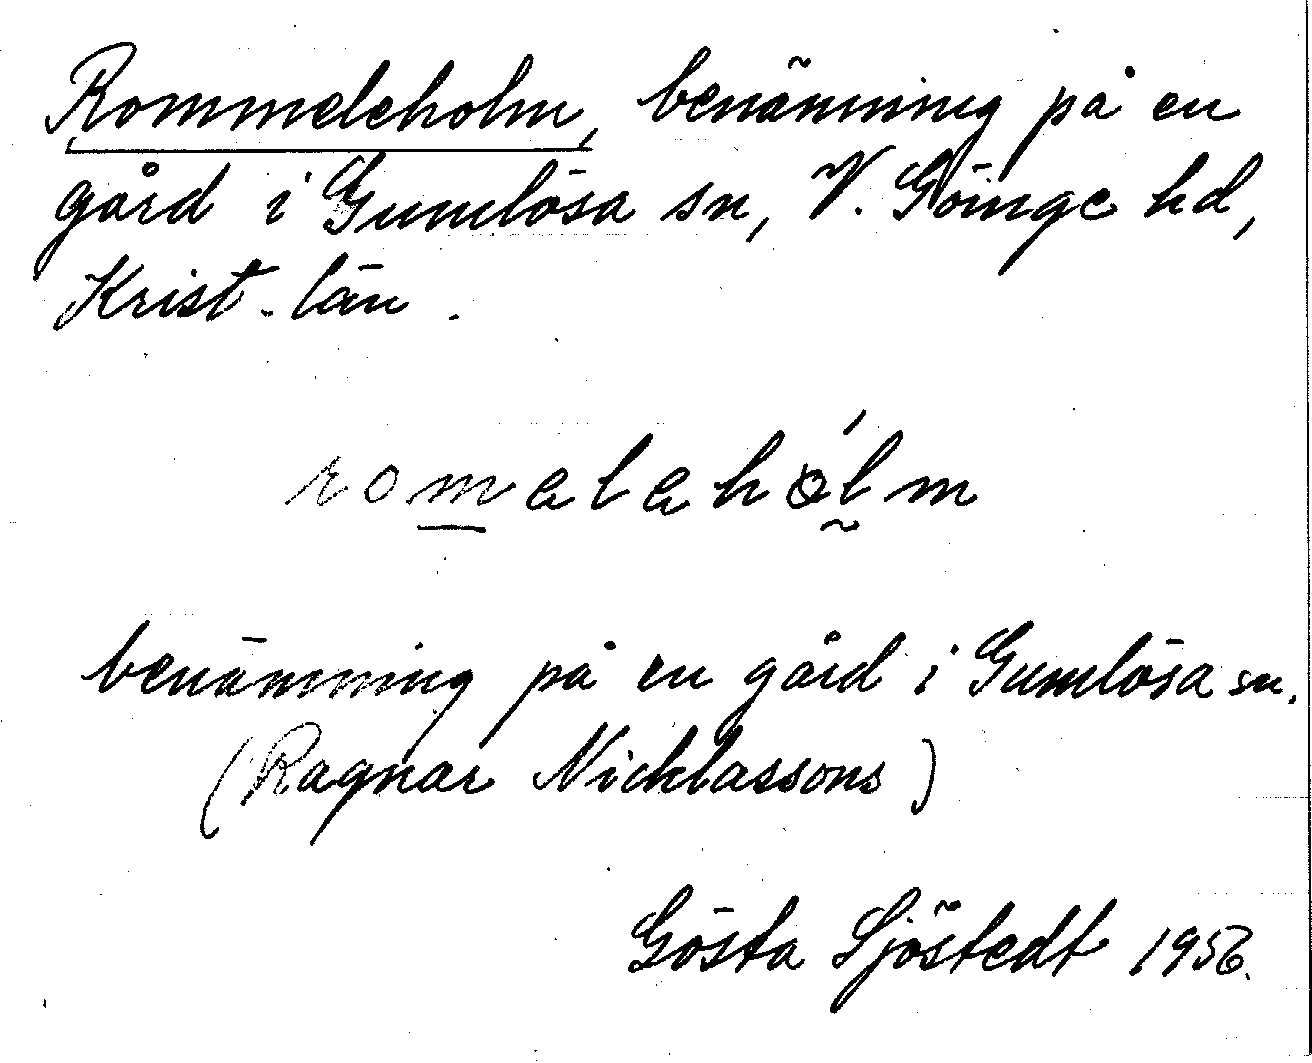 Rommeleholm, benämning på en
gård i Gumlösa sn, V. Göinge hd,
Krist. län.
romalahólm
benämning på en gård i Gumlösa sn.
(Ragnar Nicklassons)
Gösta Sjöstedt 1956.